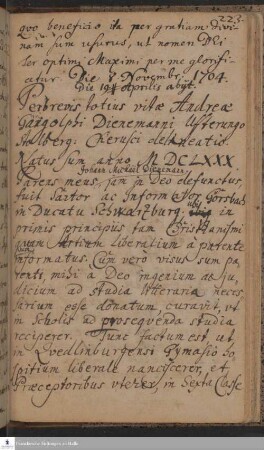 223.
quo beneficio ita per gratiam Divi-
nam sum usurus, ut nomen Dei
ter optimi Maximi per me glorifi-
cetur Die 8 Novembr. 1704.
Die 19 Aprilis abyt.
Perbrevis totius vitæ Andreæ
Gangolphi Dienemanni
Stolberg. Cherusci delineatio.
Natus sum anno MDCLXXX
Johann Michael Dienemann
Parens meus, jam in Deo defunctus
fuit Sartor ac
in Ducatu Schwartzburg. ubi in
primis principiis tam Christianismi
quam Artium liberalium a parente
sum
informatus. Cum vero visus sum pa-
renti, mihi a Deo ingenium ac ju-
dicium ad studia litteraria neces-
sarium esse donatum, curavit, ut
in Scholis ad prosequenda studia
reciperer. Tunc factum est, ut
in Quedlinburgensi Gymnasio ho-
spitium liberale nanciscerer, et
Præceptoribus uterer, in Sexta Classe